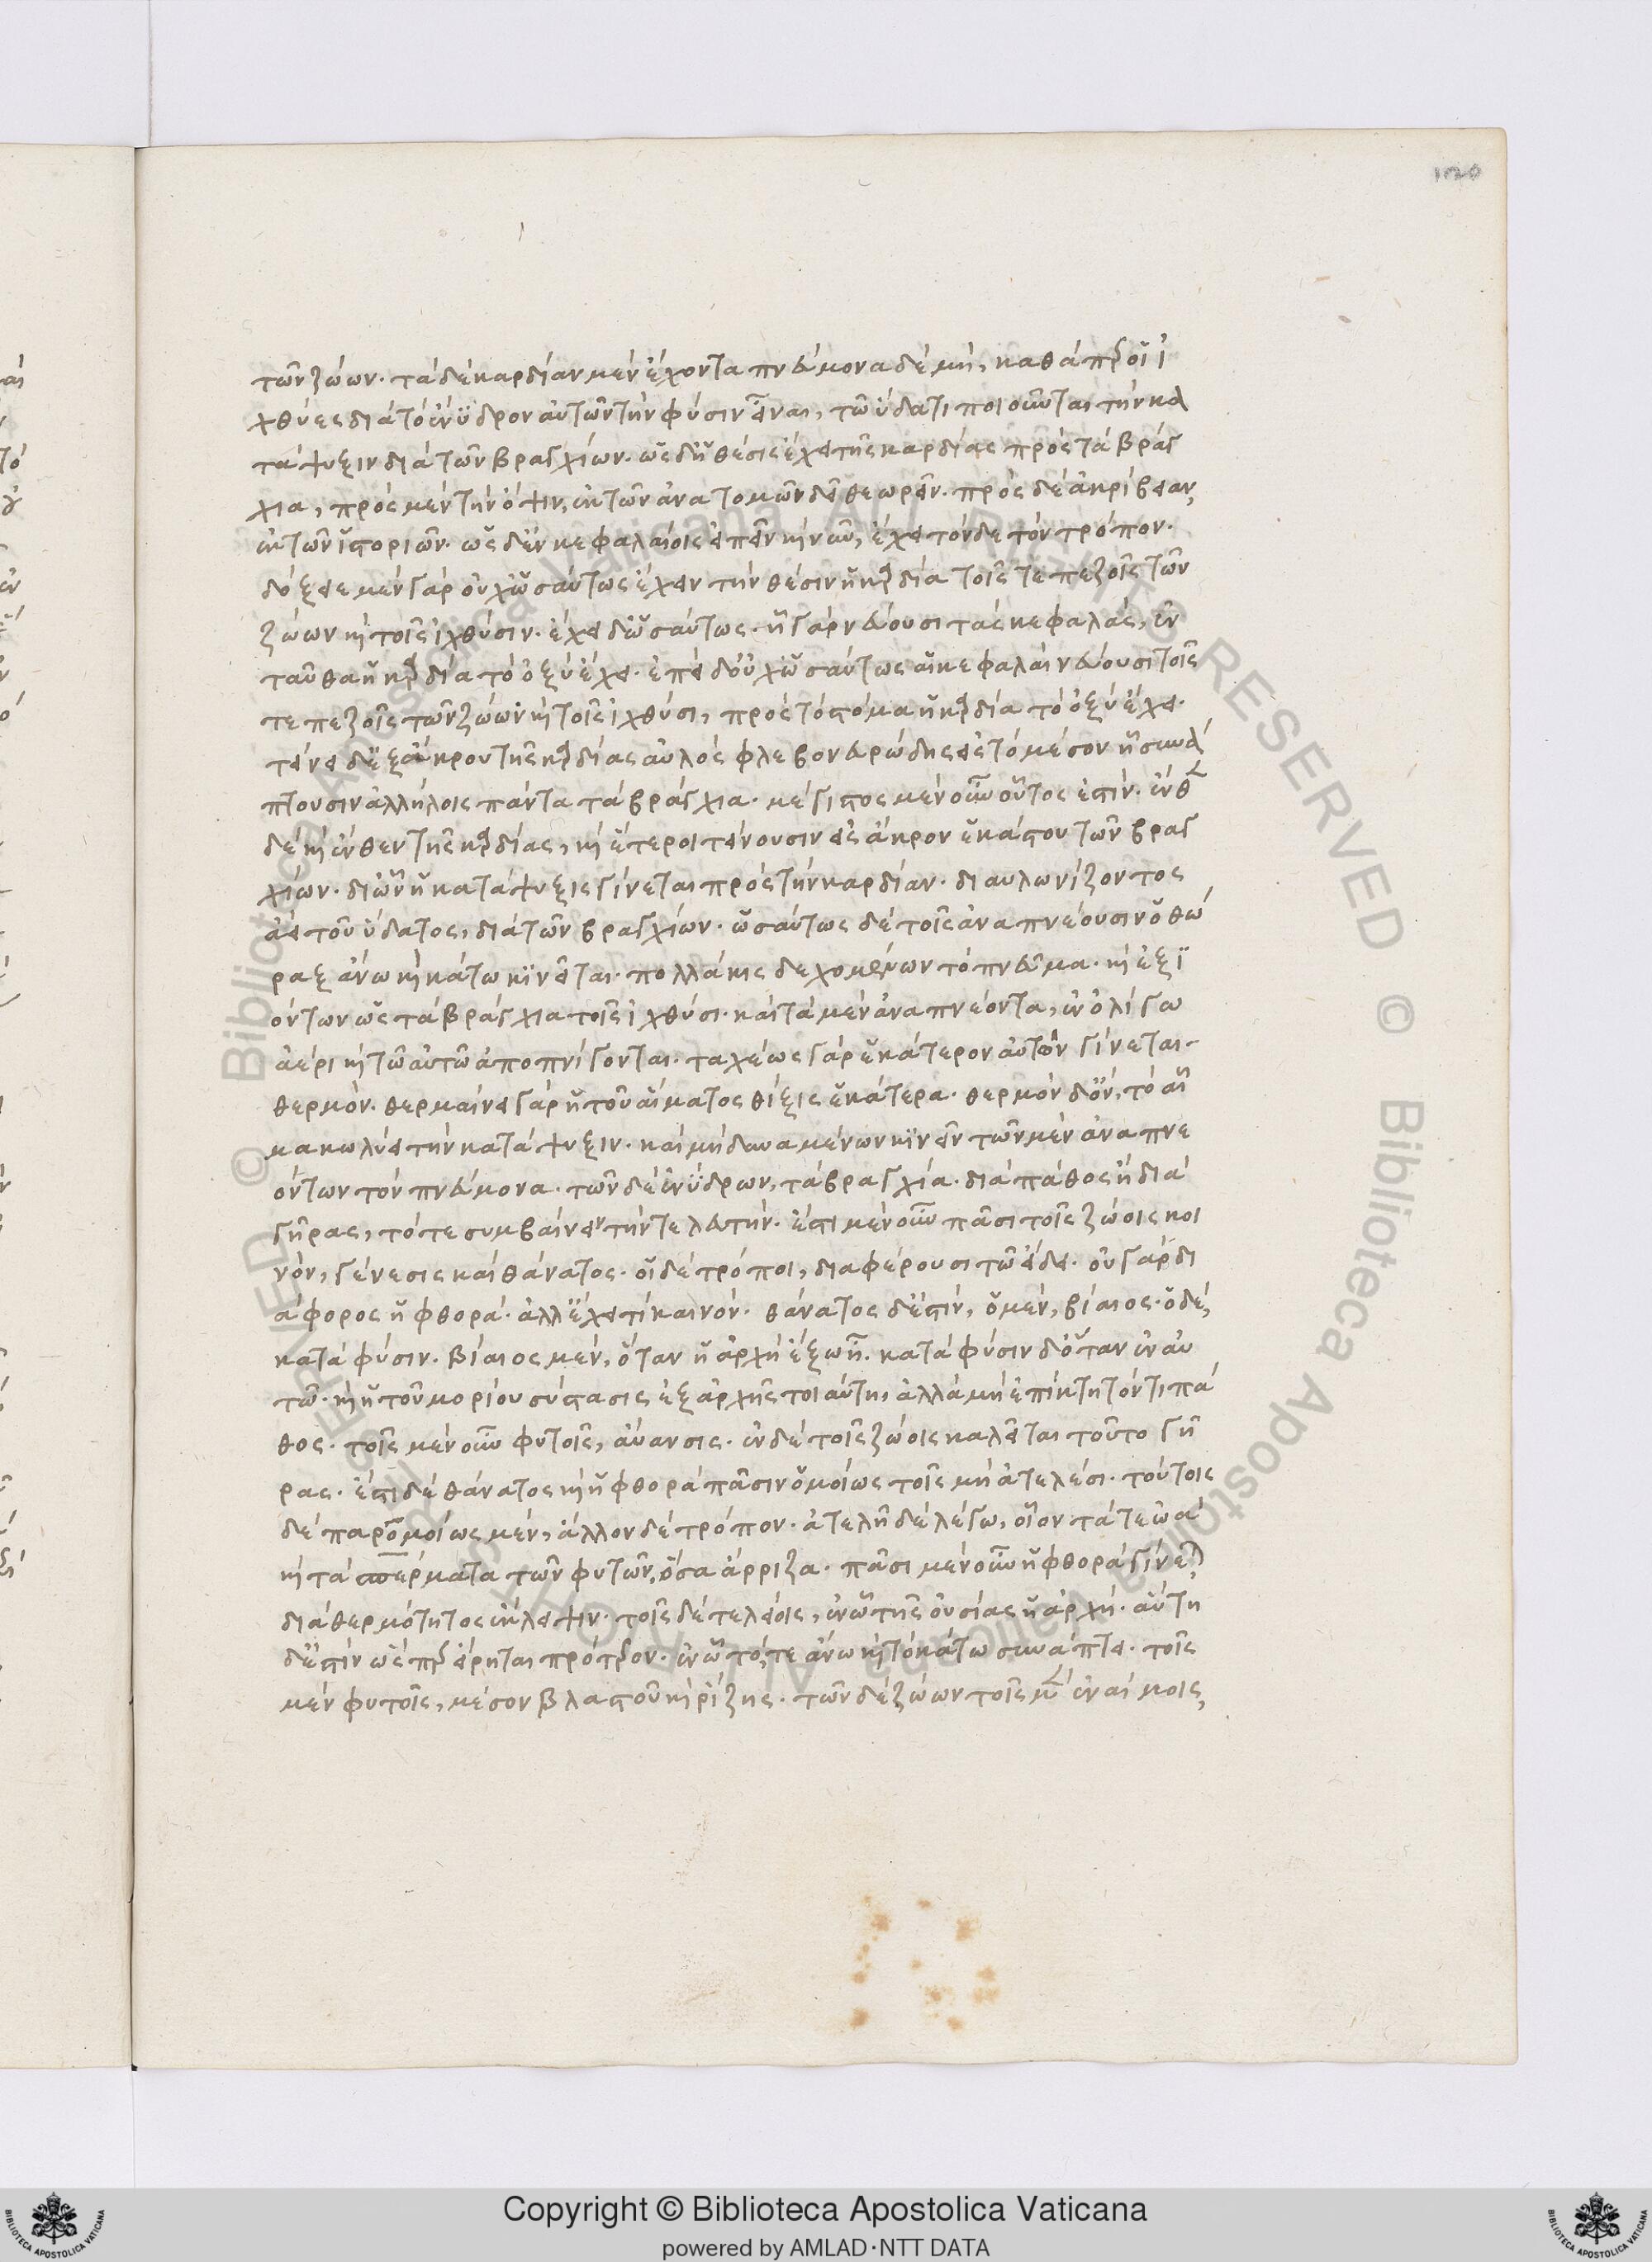 120
τῶν ζώων· τὰ δὲ καρδίαν μὲν ἔχοντα πνεύμονα δὲ μή, καθάπερ οἱ ἰ
χθύες διὰ τὸ ἔνυδρον αὐτῶν τὴν φύσιν εἶναι, τῶ ὕδατι ποιοῦνται τὴν κα
τάψυξιν διὰ τῶν βραγχίων· ὡς δ' ἡ θέσις ἔχει τῆς καρδίας πρὸς τὰ βράγ
χια, πρὸς μὲν τὴν ὄψιν, ἐκ τῶν ἀνατομῶν δεῖ θεωρεῖν· πρὸς δὲ ἀκρίβειαν,
ἐκ τῶν ἱστοριῶν· ὡς δ' ἐν κεφαλαίοις εἰπεῖν καὶ νῦν, ἔχει τόνδε τὸν τρόπον·
δόξειε μὲν γὰρ οὐχ ὡσαύτως ἔχειν τὴν θέσιν ἡ καρδία τοῖς τε πεζοῖς τῶν
ζώων καὶ τοῖς ἰχθύσιν· ἔχει δ' ὡσαύτως· ἧ γὰρ νεύουσι τὰς κεφαλάς, ἐν
ταῦθα ἡ καρδία τὸ ὀξὺ ἔχει· ἐπεὶ δ' οὐχ ὡσαύτως αἱ κεφαλαὶ νεύουσι τοῖς
τε πεζοῖς τῶν ζώων καὶ τοῖς ἰχθύσι, πρὸς τὸ στόμα ἡ καρδία τὸ ὀξὺ ἔχει·
τείνει δ' ἐξ ἄκρου τῆς καρδίας αὐλὸς φλεβονευρώδης εἰς τὸ μέσον ἧ συνά
πτουσιν ἀλλήλοις πάντα τὰ βράγχια· μέγιστος μὲν οὖν οὗτος ἐστίν· ἔνθεν
δὲ καὶ ἔνθεν τῆς καρδίας, καὶ ἕτεροι τείνουσιν εἰς ἄκρον ἑκάστου τῶν βραγ
χίων· δι' ὧν ἡ κατάψυξις γίνεται πρὸς τὴν καρδίαν· διαυλωνίζοντος
ἀεὶ τοῦ ὕδατος, διὰ τῶν βραγχίων· ὡσαύτως δὲ τοῖς ἀναπνέουσιν ὁ θώ
ραξ ἄνω καὶ κάτω κινεῖται· πολλάκις δεχομένων τὸ πνεῦμα· καὶ ἐξι
όντων ὡς τὰ βράγχια τοῖς ἰχθύσι· καὶ τὰ μὲν ἀναπνέοντα, ἐν ὀλίγω
ἀέρι καὶ τῶ αὐτῶ ἀποπνίγονται· ταχέως γὰρ ἑκάτερον αὐτῶν γίνεται
θερμόν· θερμαίνει γὰρ ἡ τοῦ αἵματος θίξις ἑκάτερα· θερμὸν δ' ὄν, τὸ αἷ
μα κωλύει τὴν κατάψυξιν· καὶ μὴ δυναμένων κινεῖν τῶν μὲν ἀναπνε
όντων τὸν πνεύμονα· τῶν δὲ ἐνύδρων, τὰ βραγχία· διὰ πάθος ἢ διὰ
γῆρας, τότε συμβαίνειν τὴν τελευτήν· ἔστι μὲν οὖν πᾶσι τοῖς ζώοις κοι
νὸν, γένεσις καὶ θάνατος· οἱ δὲ τρόποι, διαφέρουσι τῶ εἴδει· οὐ γὰρ δι
άφορος ἡ φθορά· ἀλλ' ἔχει τι καινόν· θάνατος δ' ἐστίν, ὁ μέν, βίαιος· ὁ δέ,
κατὰ φύσιν· βίαιος μέν, ὅταν ἡ ἀρχὴ ἔξω ἦ· κατὰ φύσιν δ' ὅταν ἐν αὐ
τῶ· καὶ ἡ τοῦ μορίου σύστασις ἐξ ἀρχῆς τοιαύτη, ἀλλὰ μὴ ἐπίκτητόν τι πά
θος· τοῖς μὲν οὖν φυτοῖς, αὔανσις· ἐν δὲ τοῖς ζώοις καλεῖται τοῦτο γῆ
ρας· ἔστι δὲ θάνατος καὶ ἡ φθορὰ πᾶσιν ὁμοίως τοῖς μὴ ἀτελέσι· τούτοις
δὲ παρομοίως μέν, ἄλλον δὲ τρόπον· ἀτελῆ δὲ λέγω, οἷον τά τε ὠὰ
καὶ τὰ σπέρματα τῶν φυτῶν, ὅσα ἄρριζα· πᾶσι μὲν οὖν ἡ φθορὰ γίνεται
διὰ θερμότητος ἔκλειψιν· τοῖς δὲ τελείοις, ἐν ὧ τῆς οὐσίας ἡ ἀρχή· αὕτη
δ' ἐστὶν ὥσπερ εἴρηται πρότερον· ἐν ὧ τό, τε ἄνω καὶ τὸ κάτω συνάπτει· τοῖς
μὲν φυτοῖς, μέσον βλαστοῦ καὶ ῥίζης· τῶν δὲ ζώων τοῖς μὲν ἐναίμοις,
Copyright © Biblioteca Apostolica Vaticana
powered by AMLAD·NTT DATA